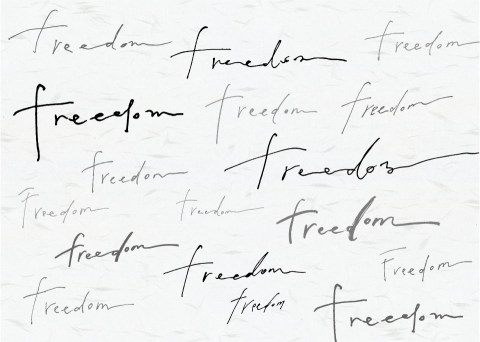 freedom
freedom
freedom
freedom
freedom
freedom
freedom
freedom
freedom
Freedom
freedom
freedom
freedom
Freedom
freedom
freedom
freedom